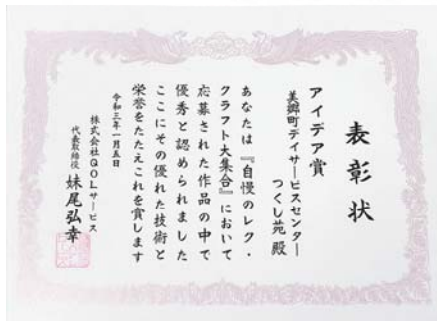 表彰状
アイデア賞
美郷町デイサービスセンター
つくし苑 殿
あなたは『自慢のレク・
クラフト大集合』において
応募された作品の中で
優秀と認められました
ここにその優れた技術と
栄誉をたたえこれを賞します
令和三年一月五日
株式会社QOLサービス
代表取締役 妹尾弘幸